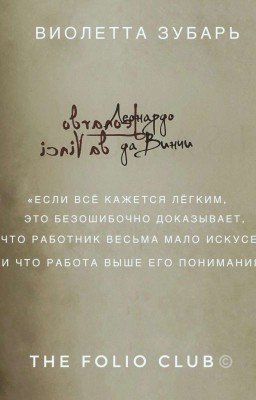 ВИОЛЕТТА ЗУБАРЬ
Леонардо
да Винчи
«ЕСЛИ ВСЁ КАЖЕТСЯ ЛЁГКИМ,
ЭТО БЕЗОШИБОЧНО ДОКАЗЫВАЕТ,
ЧТО РАБОТНИК ВЕСЬМА МАЛО ИСКУСЕ
И ЧТО РАБОТА ВЫШЕ ЕГО ПОНИМАНИЯ
THE FOLIO CLUB©